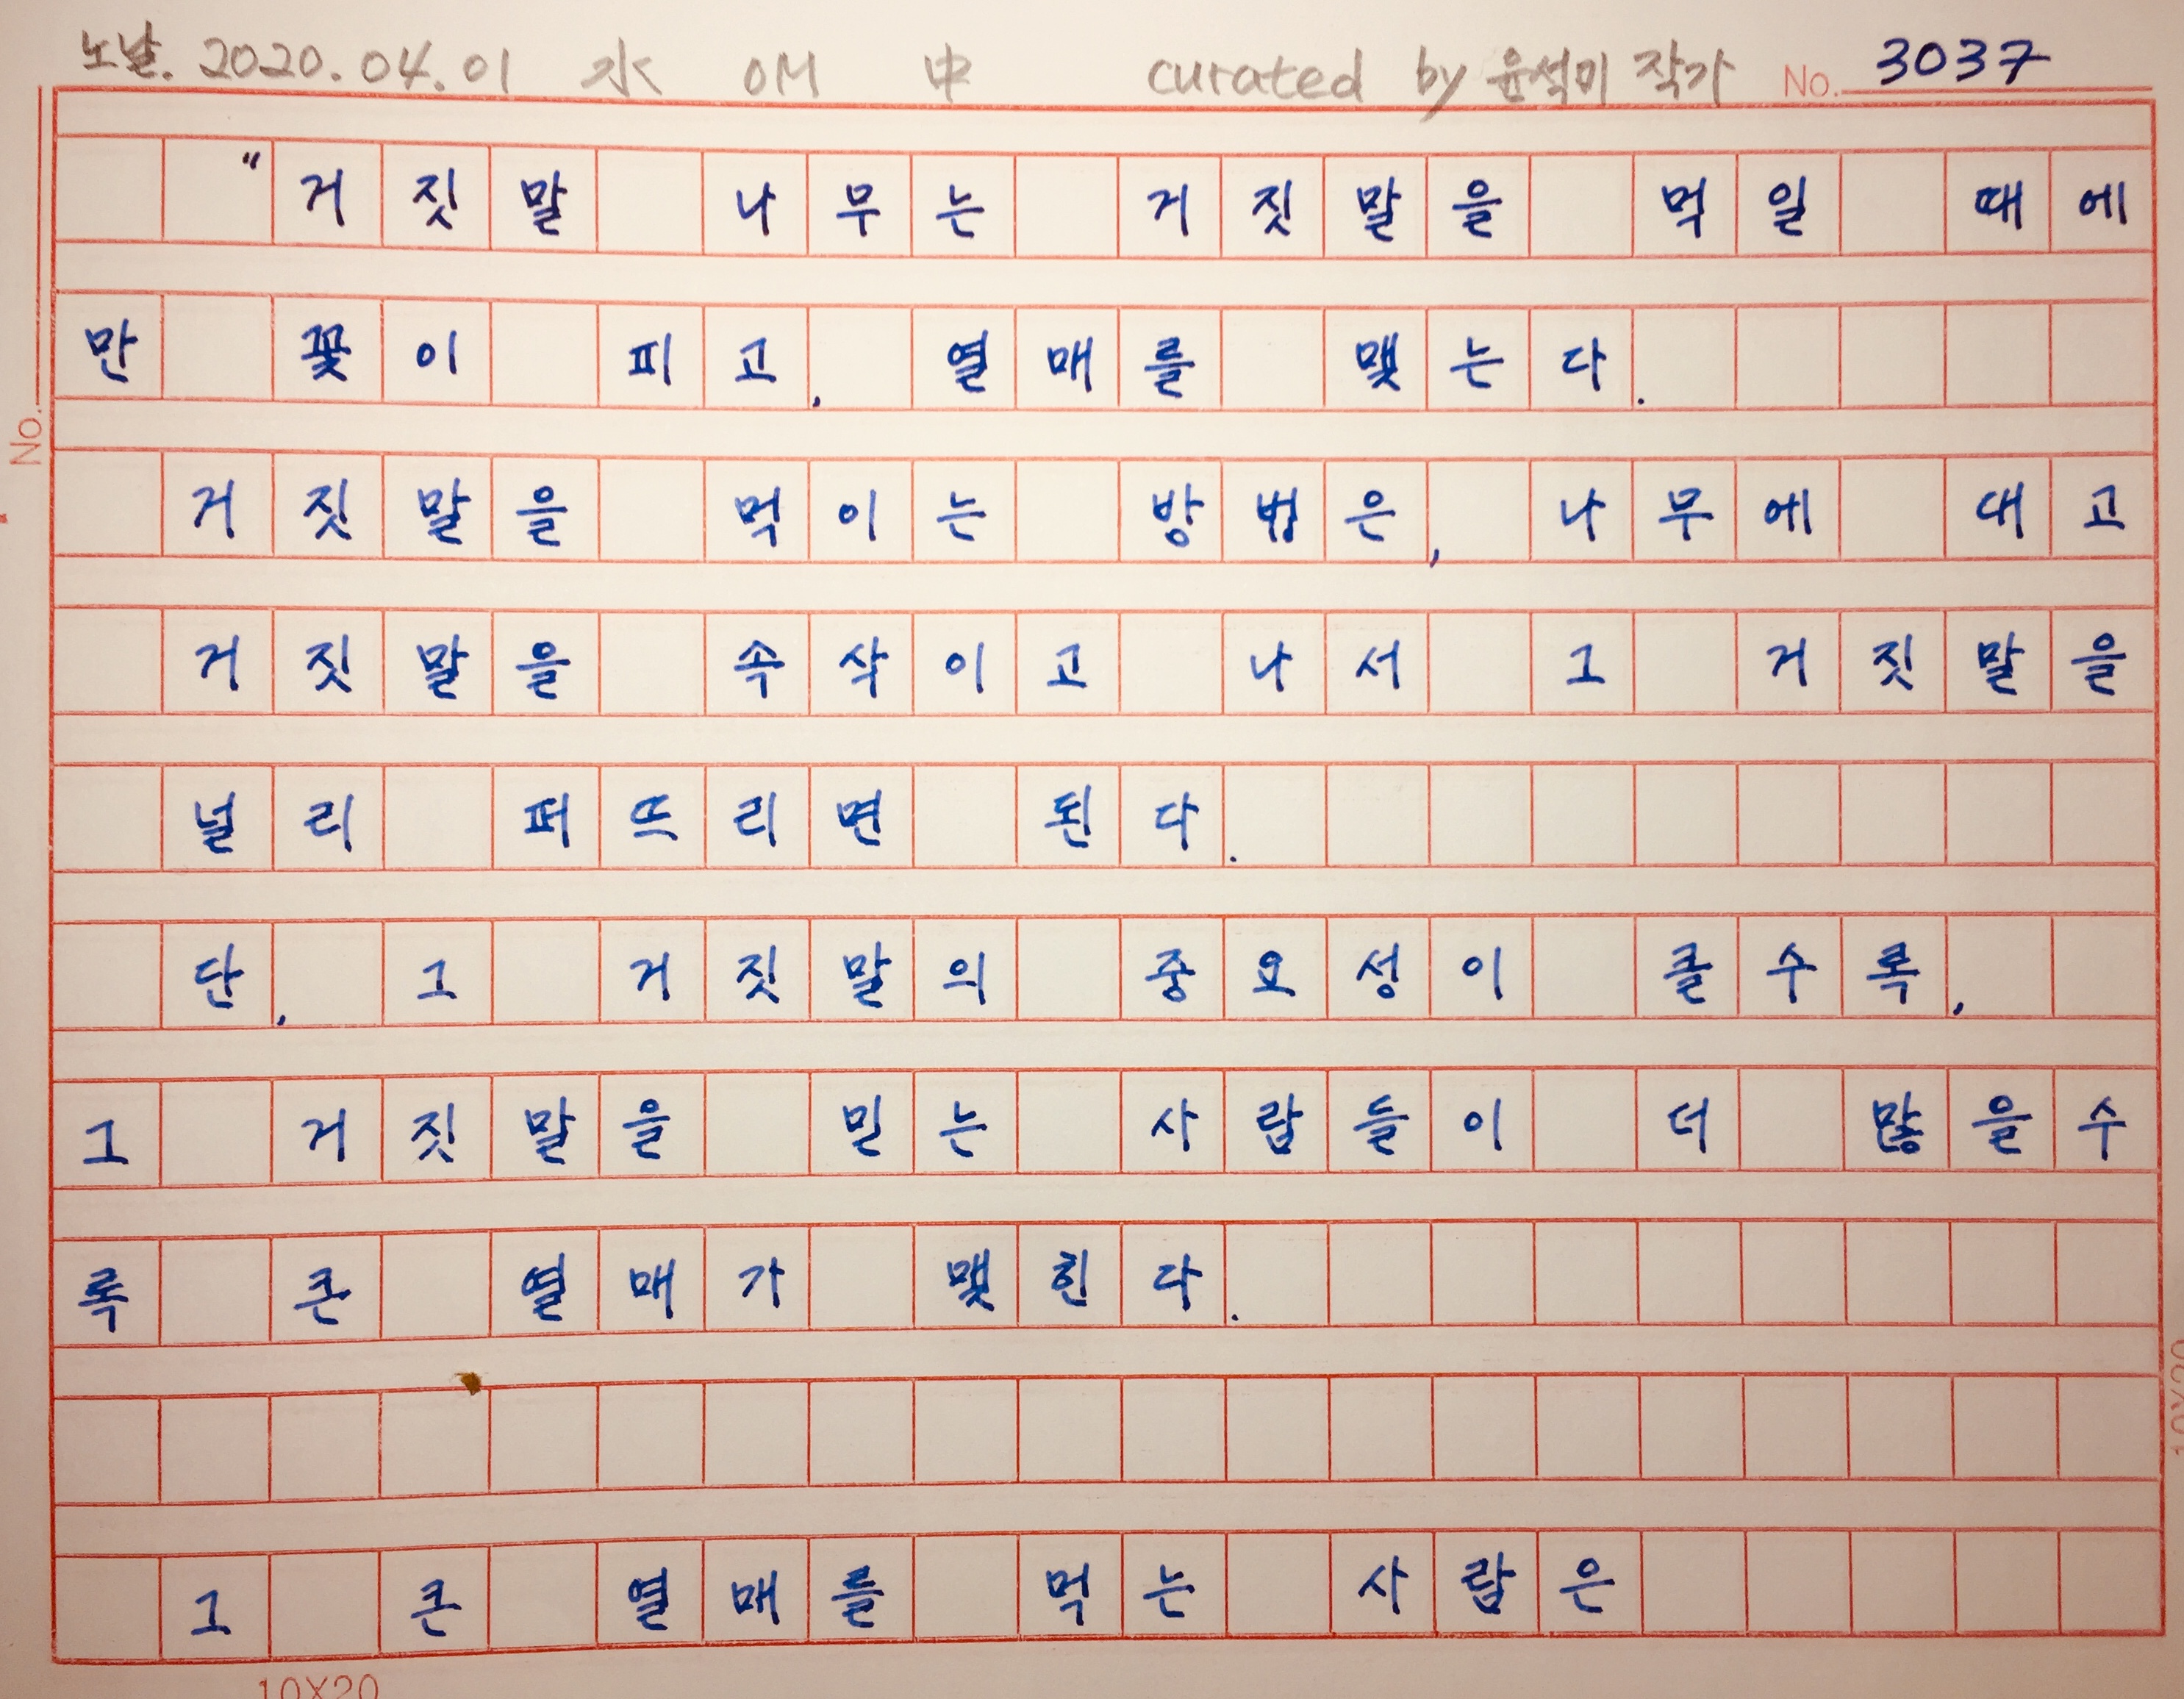 노날. 2020.04.01 水 0M 中 curated by 윤석미 작가 No. 3037
"거짓말 나무는 거짓말을 먹일 때에
만 꽃이 피고, 열매를 맺는다.
거짓말을 먹이는 방법은, 나무에 대고
거짓말을 속삭이고 나서 그 거짓말을
널리 퍼뜨리면 된다.
단, 그 거짓말의 중요성이 클수록,
그 거짓말을 믿는 사람들이 더 많을수
록 큰 열매가 맺힌다.
그 큰 열매를 먹는 사람은
No.
10X20